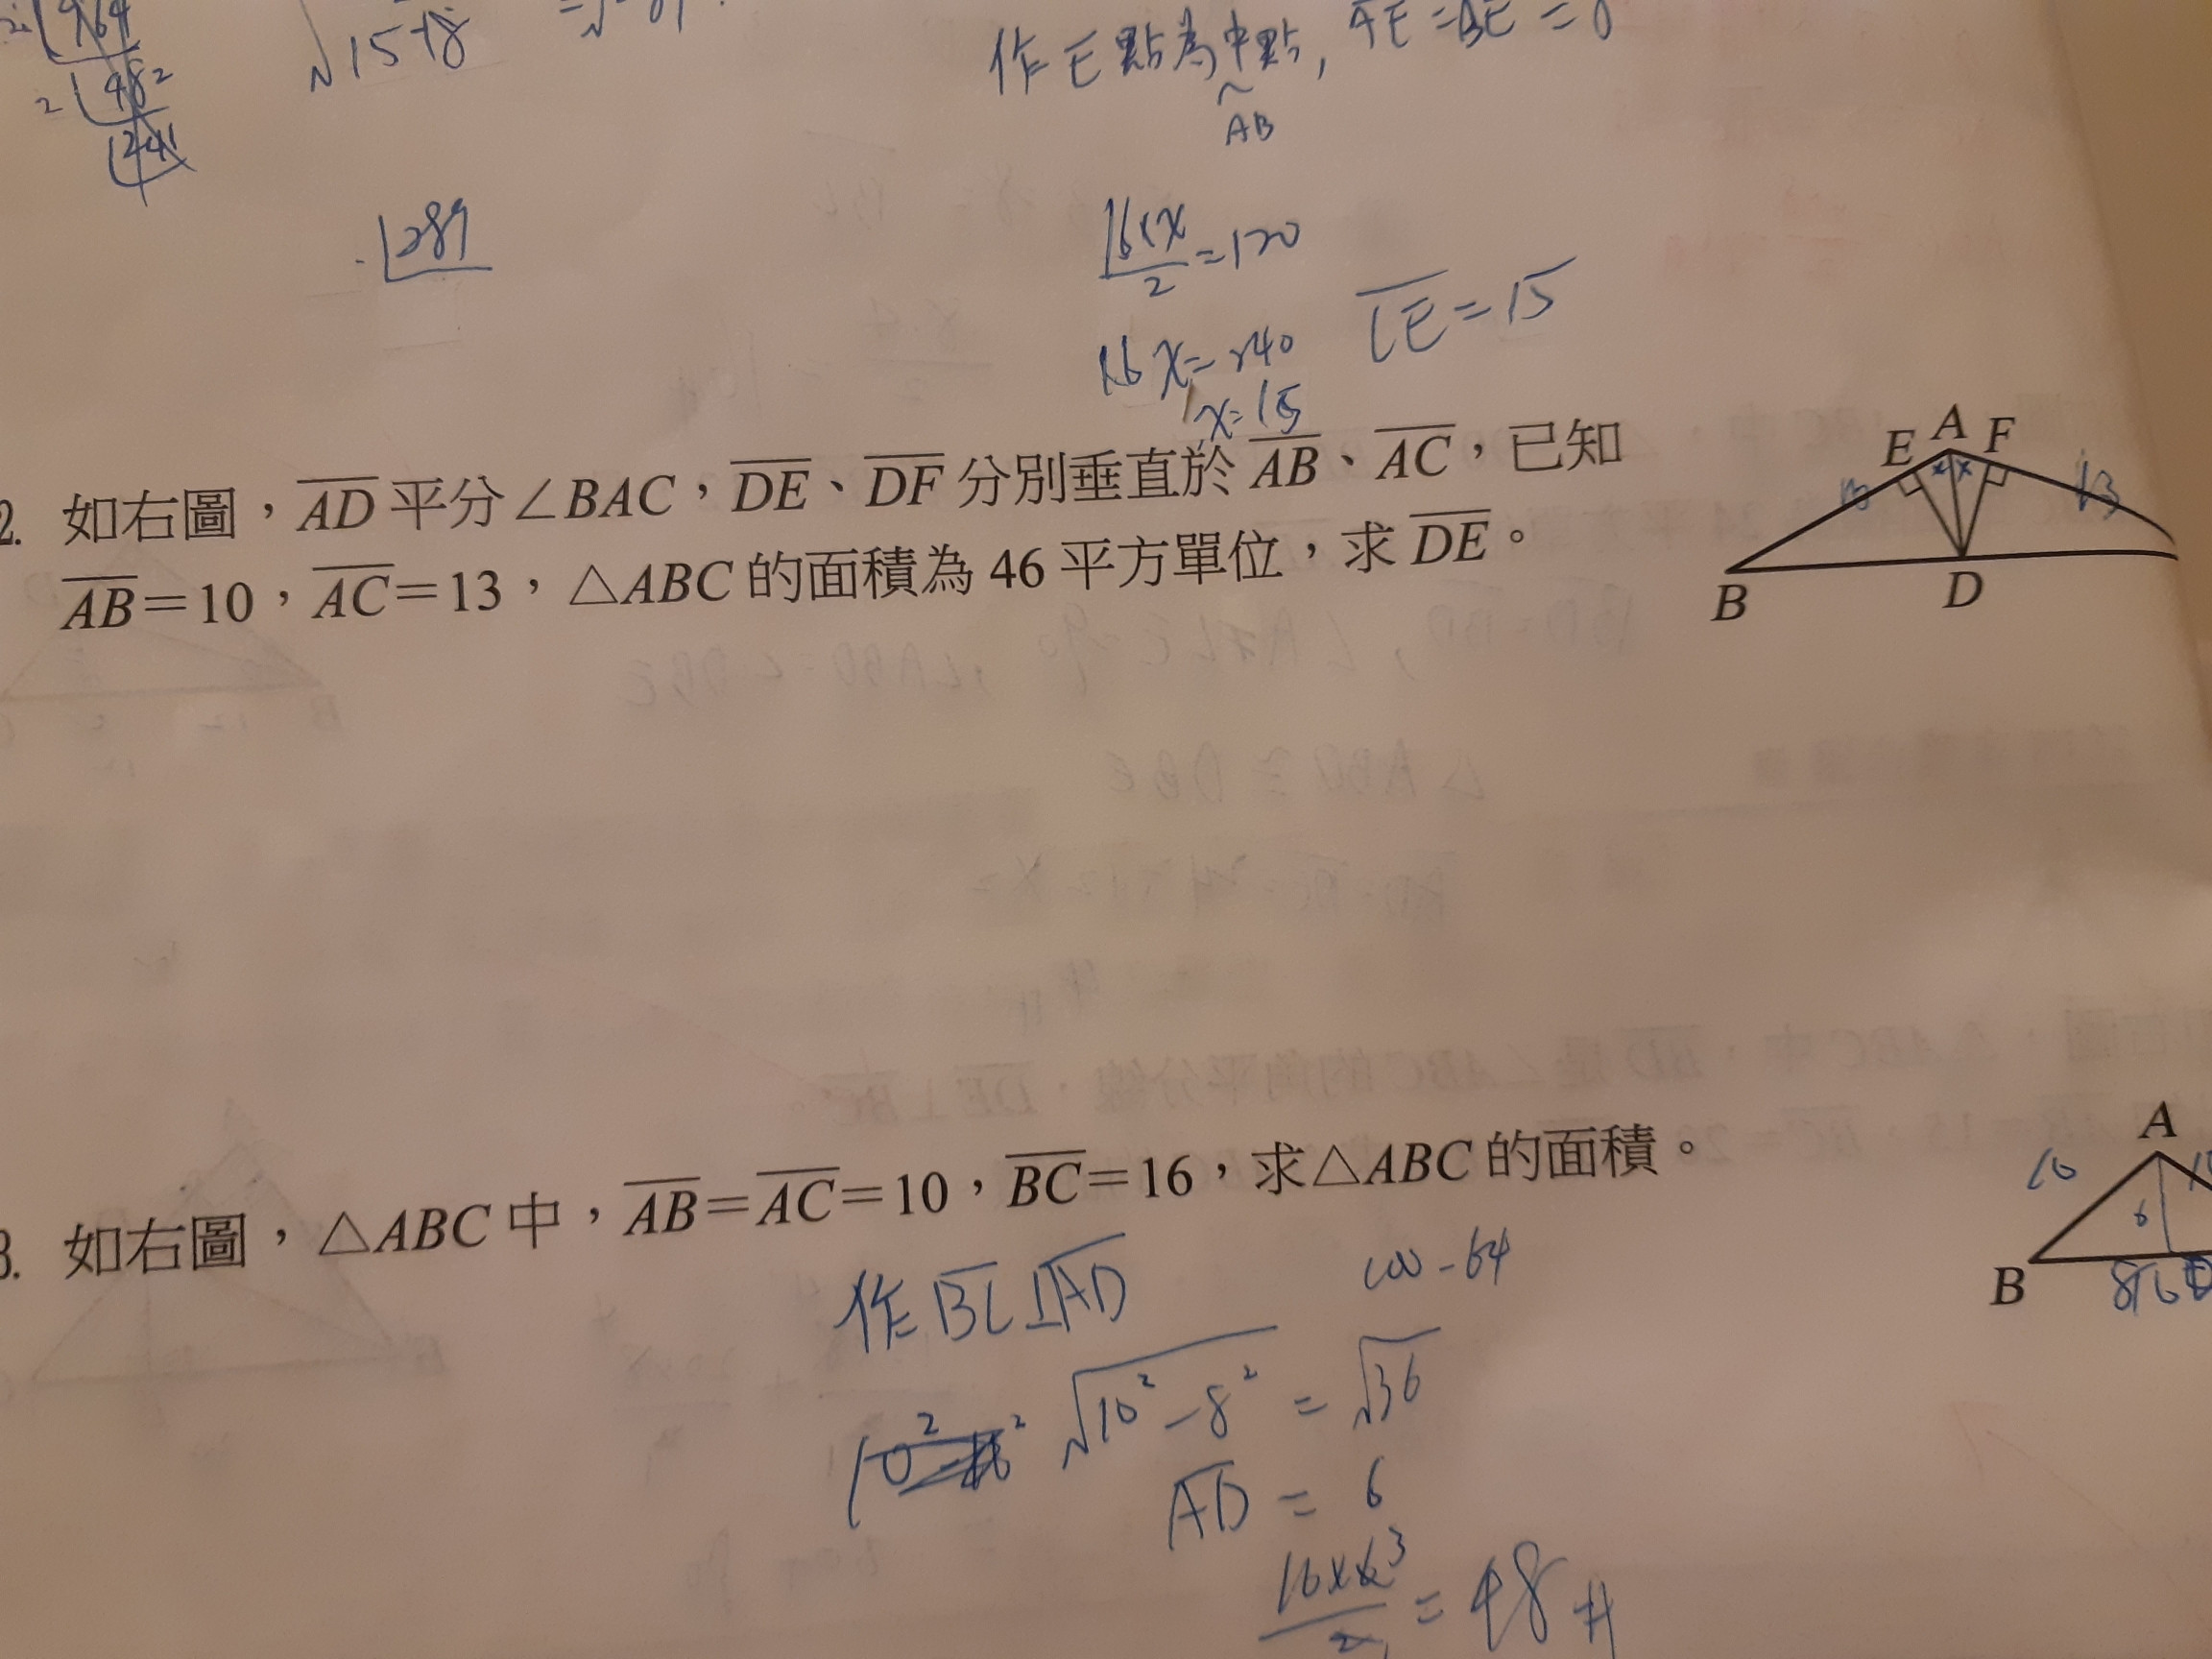 2 964
2 482
241
√15+8
作E點為中點, AE=BE=
AB
289
16×x/2=120
CE=15
16x=240
x=15
2. 如右圖，AD平分∠BAC，DE、DF分別垂直於AB、AC，已知
AB=10，AC=13，△ABC的面積為46平方單位，求DE。
E A F
× ×
10 13
B D
3. 如右圖，△ABC中，AB=AC=10，BC=16，求△ABC的面積。
A
10
6
B
作BC⊥AD
100-64
√10²-8² = √36
AD = 6
16×6 3/2 = 48 #